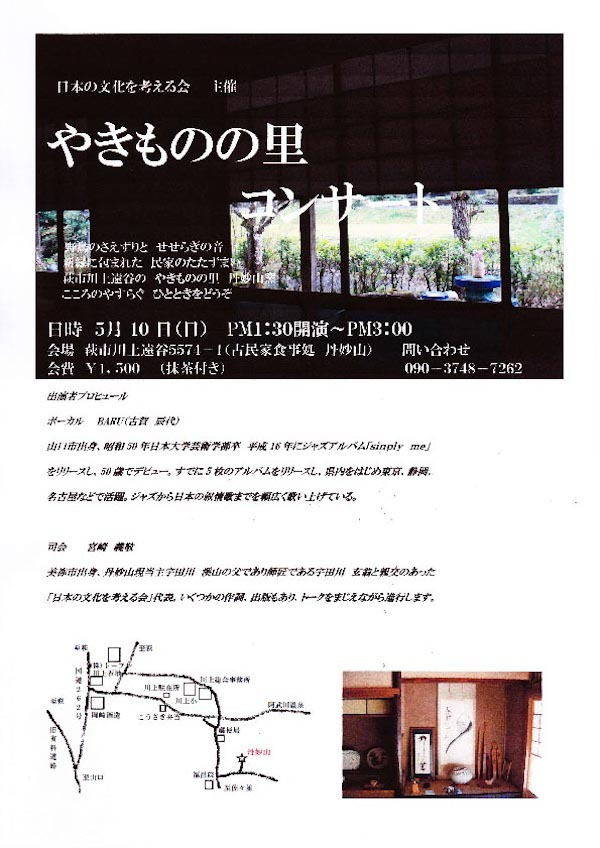 日本の文化を考える会　主催
やきものの里
コンサート
野鳥のさえずりと せせらぎの音
新緑に包まれた 民家のたたずまい
萩市川上遠谷の やきものの里 丹妙山窯
こころのやすらぐ ひとときをどうぞ
日時 5月 10 日(日) PM1:30開演～PM3:00
会場 萩市川上遠谷5574-1(古民家食事処 丹妙山)　問い合わせ
会費 ￥1,500 (抹茶付き)　090-3748-7262
出演者プロヒュール
ボーカル BARU(古賀 辰代)
山口市出身、昭和50年日本大学芸術学部卒 平成16年にジャズアルバム「sinply me」
をリリースし、50歳でデビュー。すでに5枚のアルバムをリリースし、県内をはじめ東京、静岡、
名古屋などで活躍。ジャズから日本の叙情歌までを幅広く歌い上げている。
司会 宮﨑 義敬
美祢市出身、丹妙山現当主宇田川 漢山の父であり師匠である宇田川 玄翁と親交のあった
「日本の文化を考える会」代表。いくつかの作詞、出版もあり、トークをまじえながら進行します。
至萩
至萩
川上総合事務所
川上駐在所
川上小
国道262号
岡崎酒造
こうさぎ弁当
阿武川温泉
至萩
郵便局
丹妙山
至山口
至佐々並